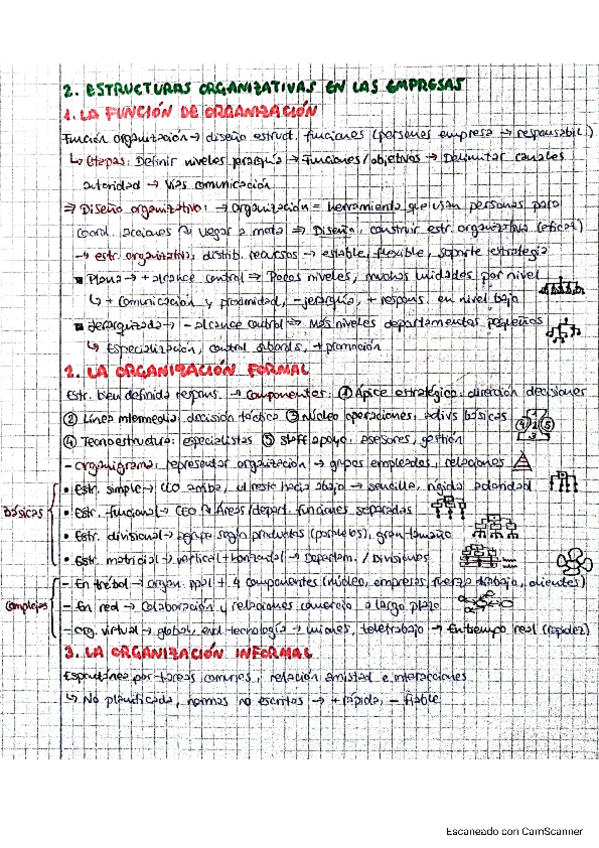 2. ESTRUCTURAS ORGANIZATIVAS EN LAS EMPRESAS
1. LA FUNCIÓN DE ORGANIZACIÓN
Función organización → diseño estruct. funciones (personas empresa → responsabil.)
↳ Etapas: Definir niveles jerarquía → Funciones/objetivos → Delimitar canales
autoridad → Vías comunicación
⇒ Diseño organizativo: → organización = herramienta que usan personas para
coord. acciones y llegar a meta ⇒ Diseña, construir estr. organizativa (eficaz)
→ estr. organizativa, distrib. recursos → estable, flexible, soporte estrategia
▪ Plana → + alcance control ⇒ Pocos niveles, muchos unidades por nivel
↳ + comunicación y proximidad, - jerarquía, + respons. en nivel bajo
▪ Jerarquizada → - alcance control ⇒ Más niveles departamentos pequeños
↳ Especialización, control, + promoción
2. LA ORGANIZACIÓN FORMAL
Estr. bien definida respons. → Componentes: ① Ápice estratégico: dirección decisiones
② Línea intermedia: decisión táctica ③ Núcleo operaciones: activs básicas
④ Tecnoestructura: especialistas ⑤ Staff apoyo: asesores, gestión
4 2 5
3
- organigrama: representar organización → grupos empleados, relaciones
Básicas
• Estr. simple → CEO arriba, el resto hacia abajo → sencilla, rígida autoridad
• Estr. funcional → CEO Áreas/depart. funciones separadas
• Estr. divisional → agrupa según productos (paralelos), gran tamaño
• Estr. matricial → vertical + horizontal → Departam. / Divisiones
Complejas
- En trébol → organ. ppal + 4 componentes (núcleo, empresas, fuerza trabajo, clientes)
- En red → Colaboración y relaciones comercio a largo plazo
- Org. virtual → global, tecnología → uniones, teletrabajo → En tiempo real (rapidez)
3. LA ORGANIZACIÓN INFORMAL
Espontánea por tareas comunes, relación amistad e interacciones
↳ No planificada, normas no escritas → + rápida, - fiable
Escaneado con CamScanner